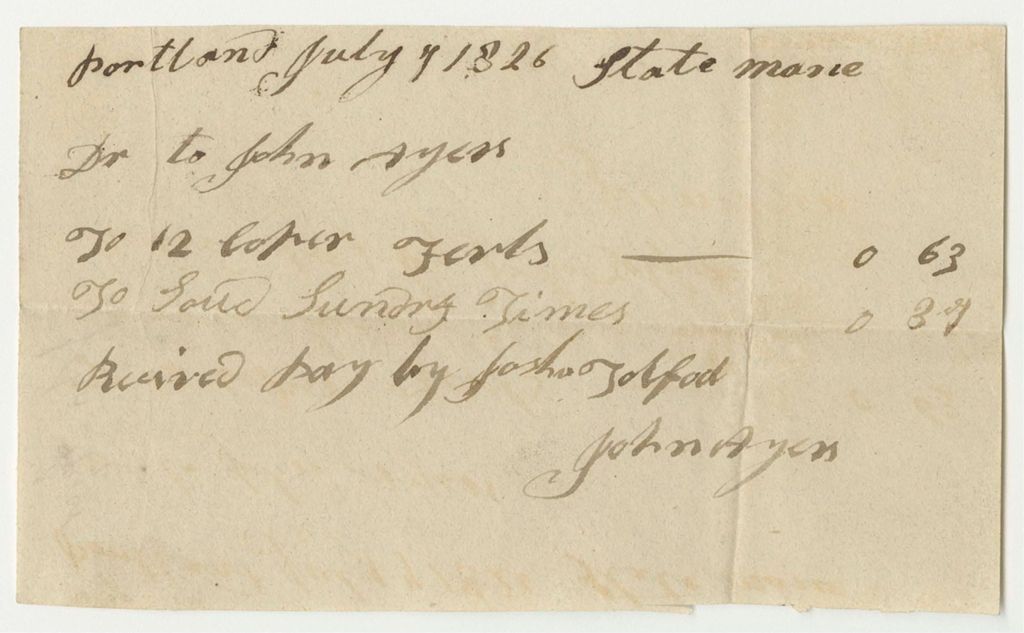 Portland July 7 1826 State Mane
Dr to John Ayers
To 12 Coper Ferls — 0 63
To Soud Sundry Times 0 37
Recived Pay by Josha Tolford
John Ayers